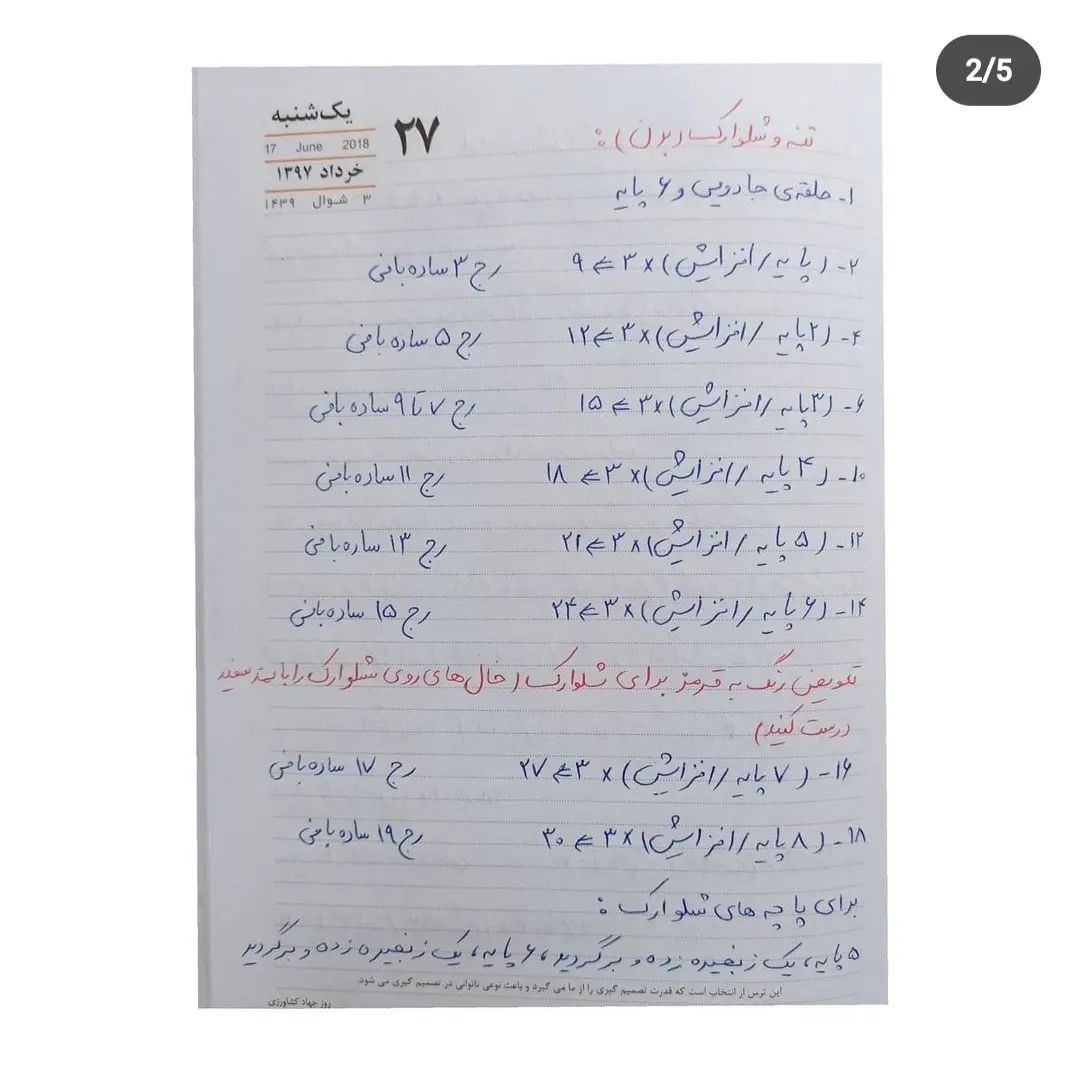 2/5
یک‌شنبه
۲۷
17 June 2018
خرداد ۱۳۹۷
۳ شوال ۱۴۳۹
تنه و شلوارک (بدن):
۱- حلقه‌ی جادویی و ۶ پایه
۲- (پایه/افزایش)×۳ ⇐ ۹ رج ۳ ساده بافی
۴- (۲ پایه/افزایش)×۳ ⇐ ۱۲ رج ۵ ساده بافی
۶- (۳ پایه/افزایش)×۳ ⇐ ۱۵ رج ۷ تا ۹ ساده بافی
۱۰- (۴ پایه/افزایش)×۳ ⇐ ۱۸ رج ۱۱ ساده بافی
۱۲- (۵ پایه/افزایش)×۳ ⇐ ۲۱ رج ۱۳ ساده بافی
۱۴- (۶ پایه/افزایش)×۳ ⇐ ۲۴ رج ۱۵ ساده بافی
تعویض رنگ به قرمز برای شلوارک (خال های روی شلوارک را با نمد سفید
درست کنید)
۱۶- (۷ پایه/افزایش)×۳ ⇐ ۲۷ رج ۱۷ ساده بافی
۱۸- (۸ پایه/افزایش)×۳ ⇐ ۳۰ رج ۱۹ ساده بافی
برای پاچه های شلوارک:
۵ پایه، یک زنجیره زده و برگردید، ۶ پایه، یک زنجیره زده و برگردید
این ترس از انتخاب است که قدرت تصمیم گیری را از ما می گیرد و باعث نوعی ناتوانی در تصمیم گیری می شود.
روز جهاد کشاورزی